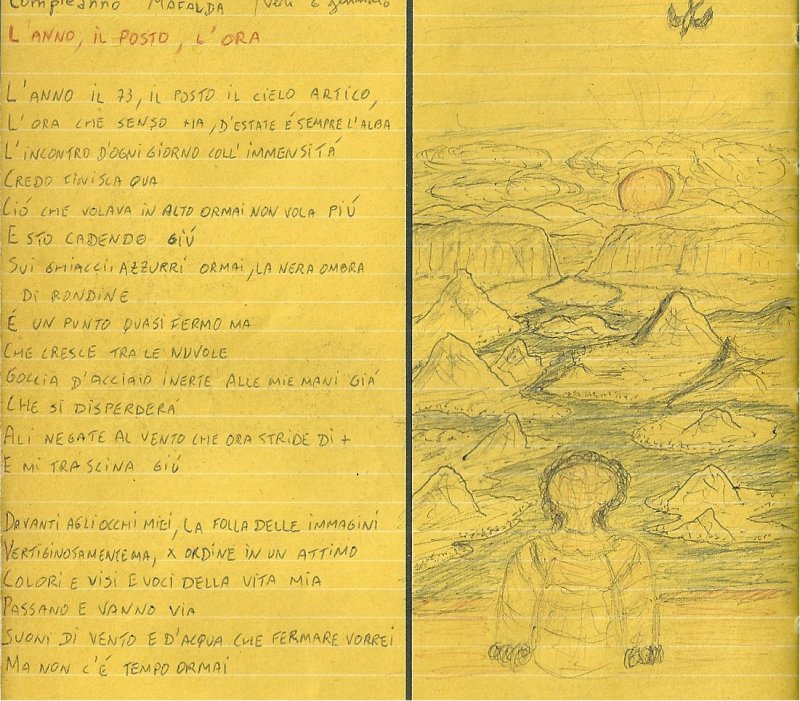 Compleanno MAFALDA (Veri 6 gennaio
L'ANNO, IL POSTO, L'ORA
L'ANNO IL 73, IL POSTO IL CIELO ARTICO,
L'ORA CHE SENSO HA, D'ESTATE É SEMPRE L'ALBA
L'INCONTRO D'OGNI GIORNO COLL'IMMENSITÁ
CREDO FINISCA QUA
CIÓ CHE VOLAVA IN ALTO ORMAI NON VOLA PIÚ
E STO CADENDO GIÚ
SUI GHIACCII AZZURRI ORMAI, LA NERA OMBRA
DI RONDINE
É UN PUNTO QUASI FERMO MA
CHE CRESCE TRA LE NUVOLE
GOCCIA D'ACCIAIO INERTE ALLE MIE MANI GIÁ
CHE SI DISPERDERÁ
ALI NEGATE AL VENTO CHE ORA STRIDE DI +
E MI TRASCINA GIÚ
DAVANTI AGLI OCCHI MIEI, LA FOLLA DELLE IMMAGINI
VERTIGINOSAMENTE MA, X ORDINE IN UN ATTIMO
COLORI E VISI E VOCI DELLA VITA MIA
PASSANO E VANNO VIA
SUONI DI VENTO E D'ACQUA CHE FERMARE VORREI
MA NON C'É TEMPO ORMAI